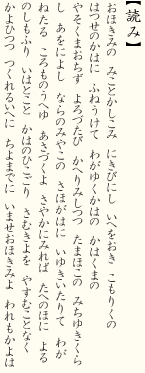 【読み】
おほきみの みことかしこみ にきびにし いへをおき こもりくの
はつせのかはに ふねうけて わがゆくかはの かはくまの
やそくまおちず よろづたび かへりみしつつ たまほこの みちゆきくら
し あをによし ならのみやこの さほがはに いゆきいたりて わが
ねたる ころものうへゆ あさづくよ さやかにみれば たへのほに よる
のしもふり いはとこと かはのひこごり さむきよを やすむことなく
かよひつつ つくれるいへに ちよまでに いませおほきみよ われもかよは